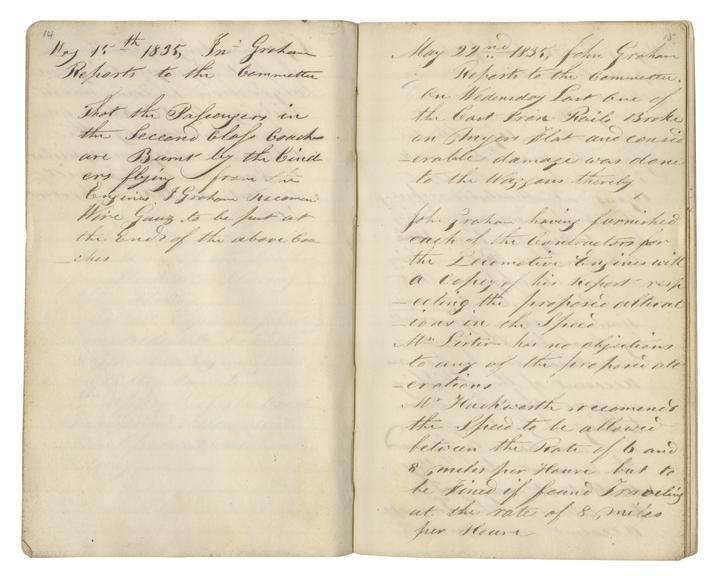 14
May 15th 1835, Jno Graham
Reports to the Committee
That the Passengers in
the Second Class Coachs
are Burnt by the Cind
ers flying from the
Engines J Graham Recomen
Wire Gauz to be put at
the Ends of the above Coa
-ches
15
May 22nd 1835, John Graham
Reports to the Committee.
On Wedensday Last One of
the Cast Iron Rails Broke
on Flat and consid
-erable damage was done
to the Waggons thereby
John Graham having furnished
each of the Contractors for
the Locomotive Engines with
a Copey of his Report resp
-ecting the proposed alterat
-ions in the Speed
Mr Lister has no objections
to any of the proposed alt
-erations
Mr Hackworth recomends
the Speed to be allowed
between the Rate of 6 and
8 miles per Houre but to
be Fined if found Traveling
at the rate of 8 miles
per Houre